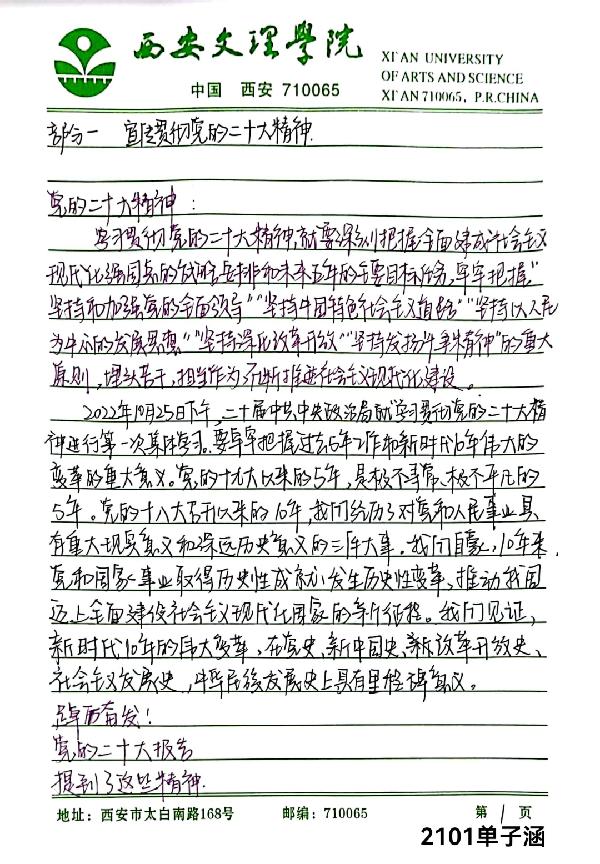 西安文理學院
中国 西安 710065
XI'AN UNIVERSITY
OF ARTS AND SCIENCE
XI'AN 710065, P.R.CHINA
部分一 宣传贯彻党的二十大精神.
党的二十大精神:
学习贯彻党的二十大精神,就要深刻把握全面建成社会主义
现代化强国的战略安排和未来五年的主要目标任务,牢牢把握“
坚持和加强党的全面领导”“坚持中国特色社会主义道路”“坚持以人民
为中心的发展思想”“坚持深化改革开放”“坚持发扬斗争精神”的重大
原则,埋头苦干,担当作为不断推进社会主义现代化建设。
2022年10月25日下午,二十届中共中央政治局就学习贯彻党的二十大精
神进行第一次集体学习。要牢牢把握过去5年工作和新时代10年伟大的
变革的重大意义。党的十九大以来的5年,是极不寻常、极不平凡的
5年。党的十八大召开以来的10年,我们经历了对党和人民事业具
有重大现实意义和深远历史意义的三件大事。我们自豪,10年来,
党和国家事业取得历史性成就,发生历史性变革,推动我国
迈上全面建设社会主义现代化国家的新征程。我们见证,
新时代10年的伟大变革,在党史、新中国史、改革开放史、
社会主义发展史,中华民族发展史上具有里程碑意义。
踔厉奋发!
党的二十大报告
提到了这些精神.
地址:西安市太白南路168号 邮编:710065 第 1 页
2101单子涵